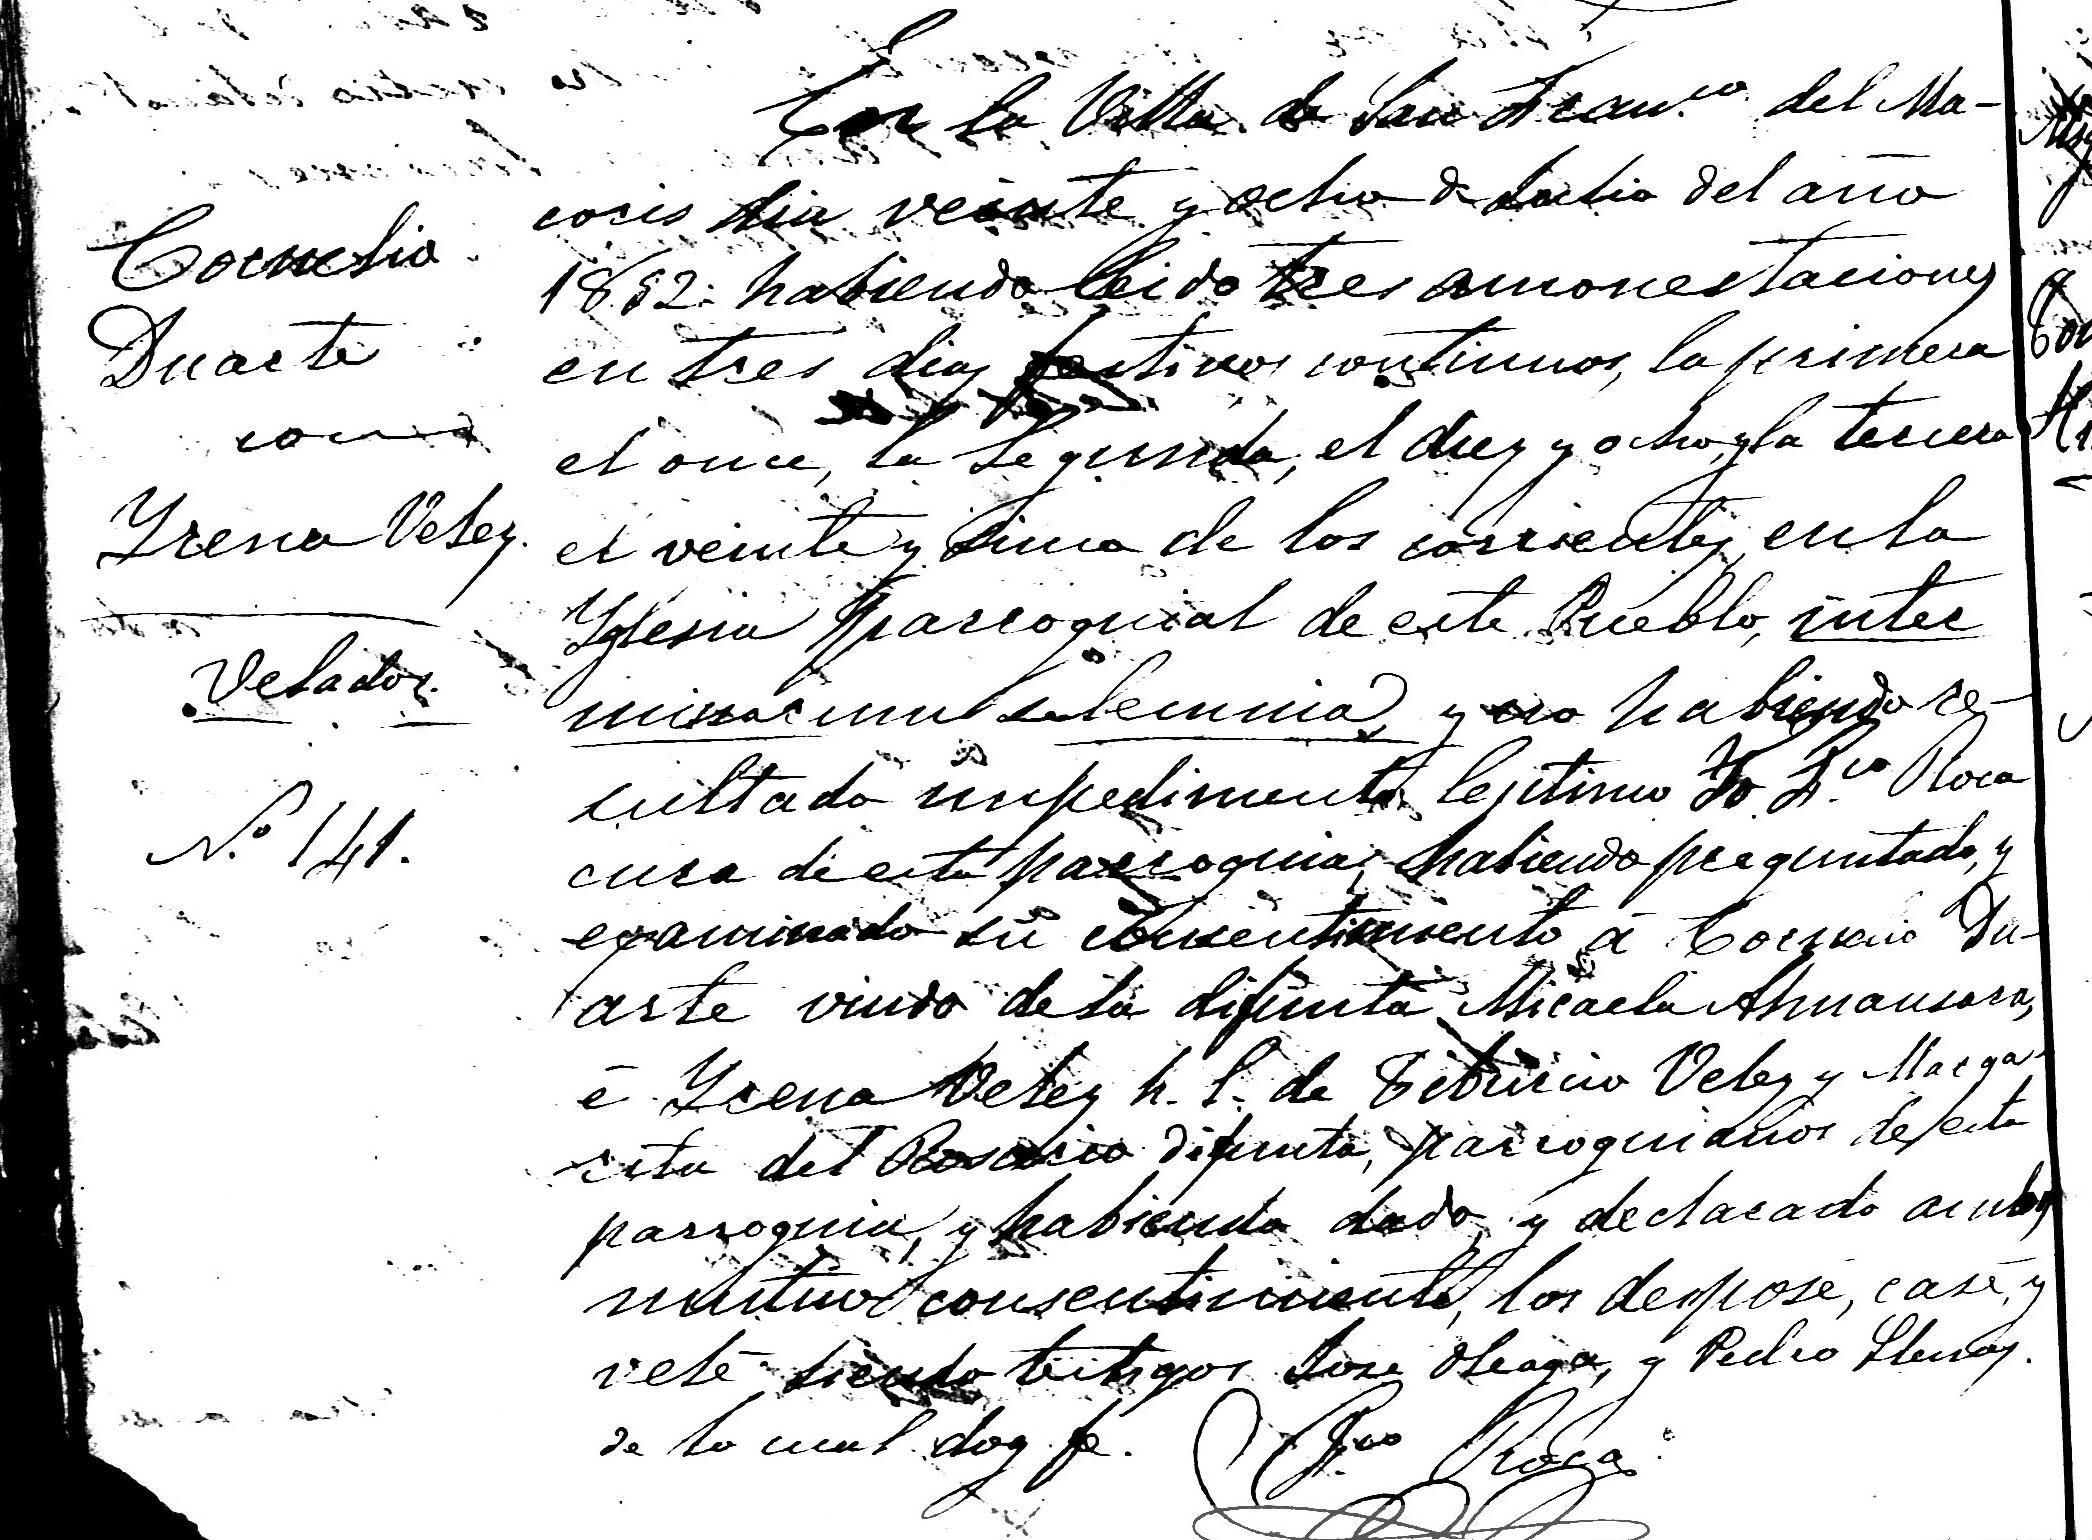 Cornelio
Duarte
con
Yrena Veley.
Velados.
N.º 141.
En la Villa de San Fran.co del Ma-
coris dia veinte y ocho de Julio del año
1852 habiendo leido tres amonestaciones
en tres dias festivos continuos, la primera
el once, la segunda, el diez y ocho, y la tercera
el veinte y sinco de los corrientes, en la
Yglesia parroquial de este Pueblo, inter
missarum solemnia, y no habiendo re-
sultado impedimento lejitimo Yo Fr.co Roca
cura de esta parroquia, habiendo preguntado, y
examinado su consentimiento á Cornelio Du-
arte viudo de la difunta Micaela Almansara,
é Yrena Veley h. l. de Tiburcio Veley y Marga-
rita del Rosario difunta, parroquianos de esta
parroquia, y habiendo dado, y declarado ambos
mutuo consentimiento, los despose, casé, y
velé siendo testigos Jose Oleaga, y Pedro Llenas.
de lo cual doy fe. Fr.co Roca